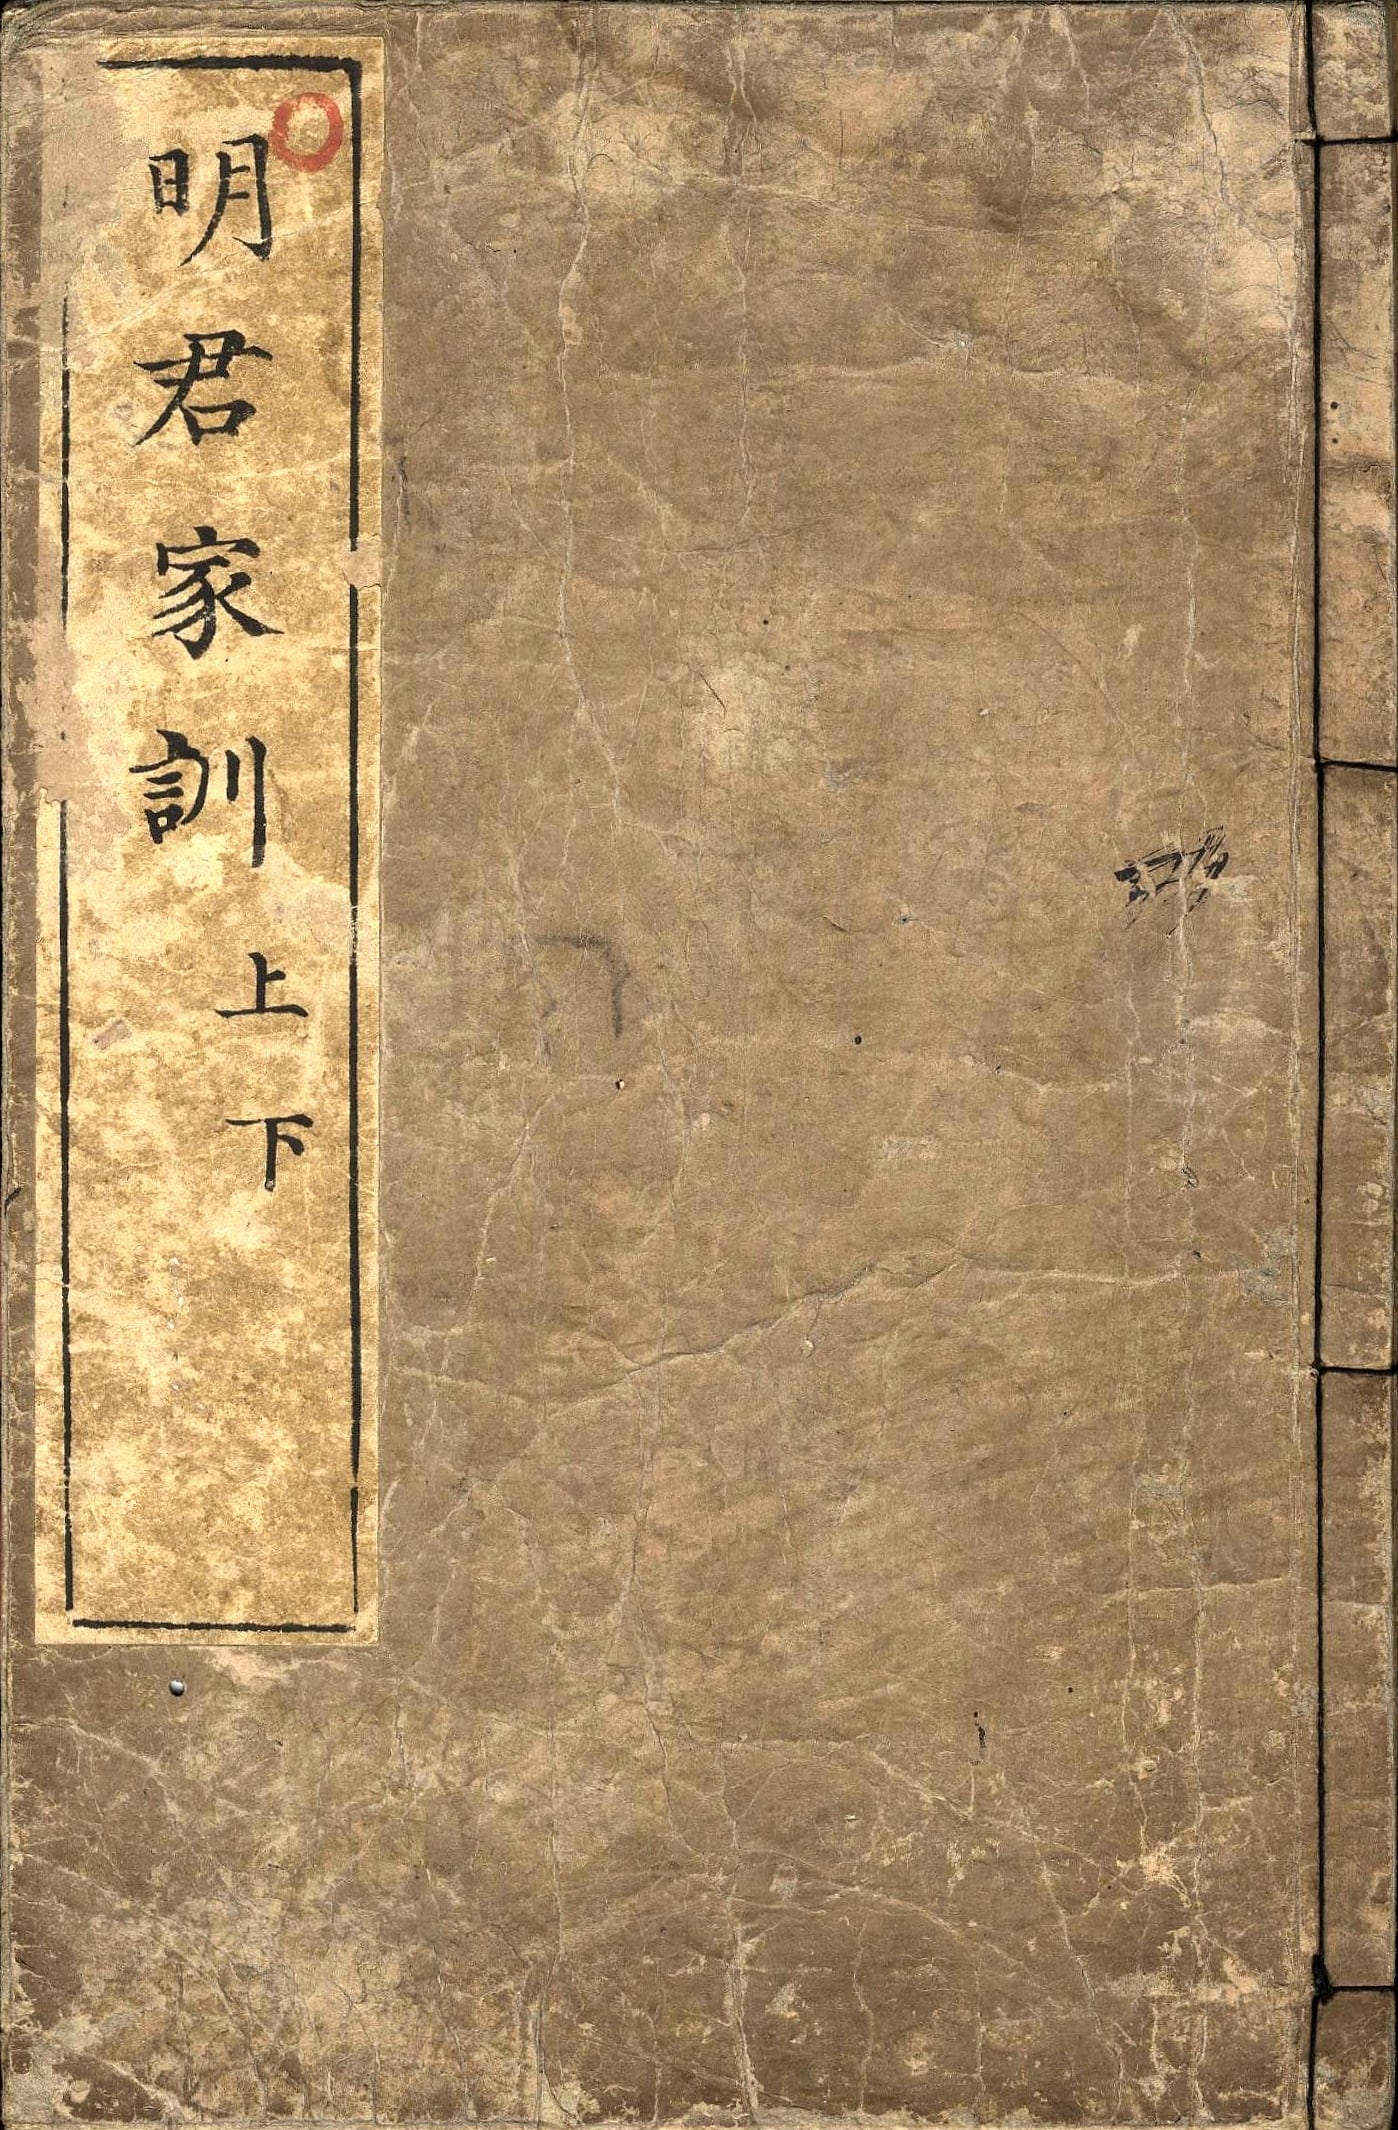 明君家訓 上下